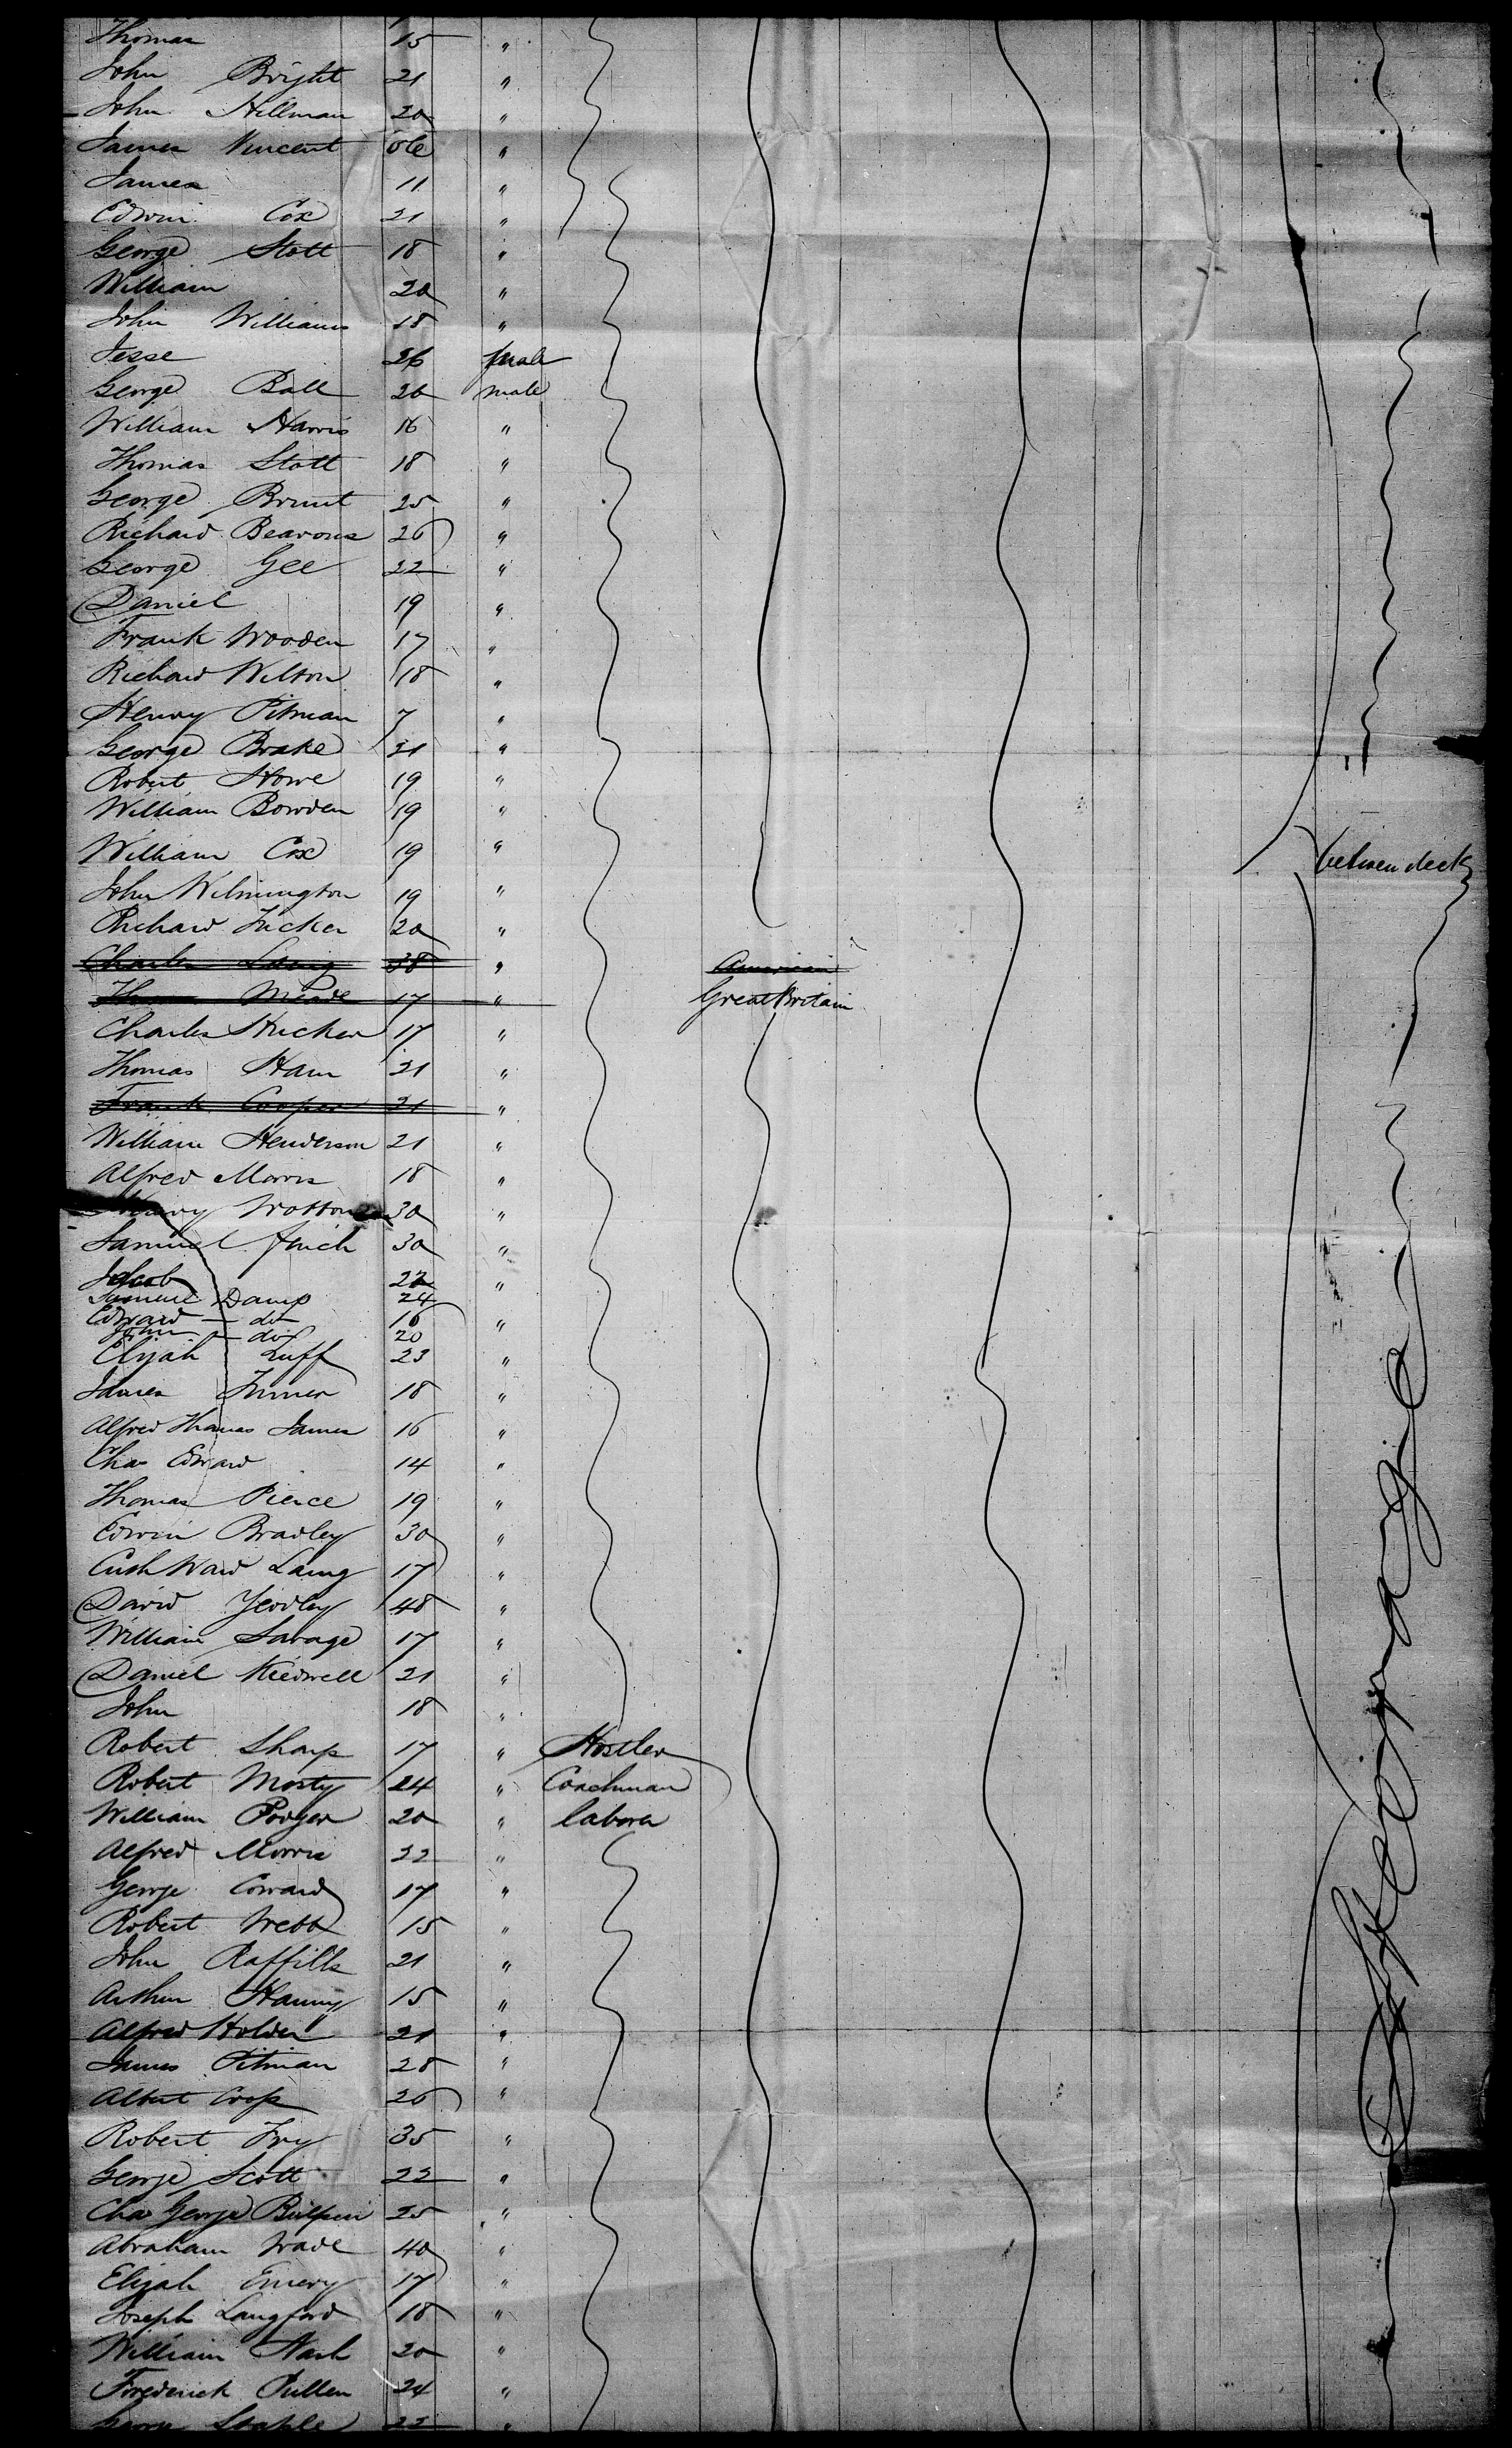 Thomas 15 "
John Bright 21 "
John Hillman 20 "
James Vincent "
James 11 "
Edwin Cox 21 "
George Stott 18 "
William 20 "
John Williams 18 "
Jesse 26
George Ball 26 male
William Harris 16 "
Thomas Stott 18 "
George Brunt 25 "
Richard Beavons 26 "
George Gee 22 "
Daniel 19 "
Frank Wooden 17 "
Richard Wilton 18 "
Henry Pitman 7 "
George Brake 21 "
Robert Howe 19 "
William Bowden 19 "
William Cox 19 " between decks
John Wilmington 19 "
Richard Tucker 20 "
Charles Laing 38 " American
Meade 17 " Great Britain
Charles Hucker 17 "
Thomas Ham 21 "
Frank Cooper 21 "
William Henderson 21 "
Alfred Morris 18 "
Henry Wotton 30 "
Samuel Finch 30 "
Jacob 22 "
Samuel Damp 24
Edward - do 16 "
- do 20
Elijah Luff 23 "
James Turner 18 "
Alfred Thomas James 16 "
Chas Edward 14 "
Thomas Pierce 19 "
Edwin Bradley 30 "
Ward Laing 17 "
David Yeodley 48 "
William Savage 17 "
Daniel Kiedwell 21 "
John 18 "
Robert Sharp 17 " Hostler
Robert Mosty 24 " Coachman
William Podger 20 " labora
Alfred Morris 22 "
George Coward 17 "
Robert Webb 15 "
John Raffills 21 "
Arthur Hanny 15 "
Alfred Holder 21 "
James Pitman 28 "
Albert Coop 26 "
Robert Fry 35 "
George Scott 22 "
Chas George Bulpin 25 "
Abraham Wade 40 "
Elijah Emery 17 "
Joseph Langford 18 "
William Nash 20 "
Frederick Pullen 24 "
George Stable 22 "